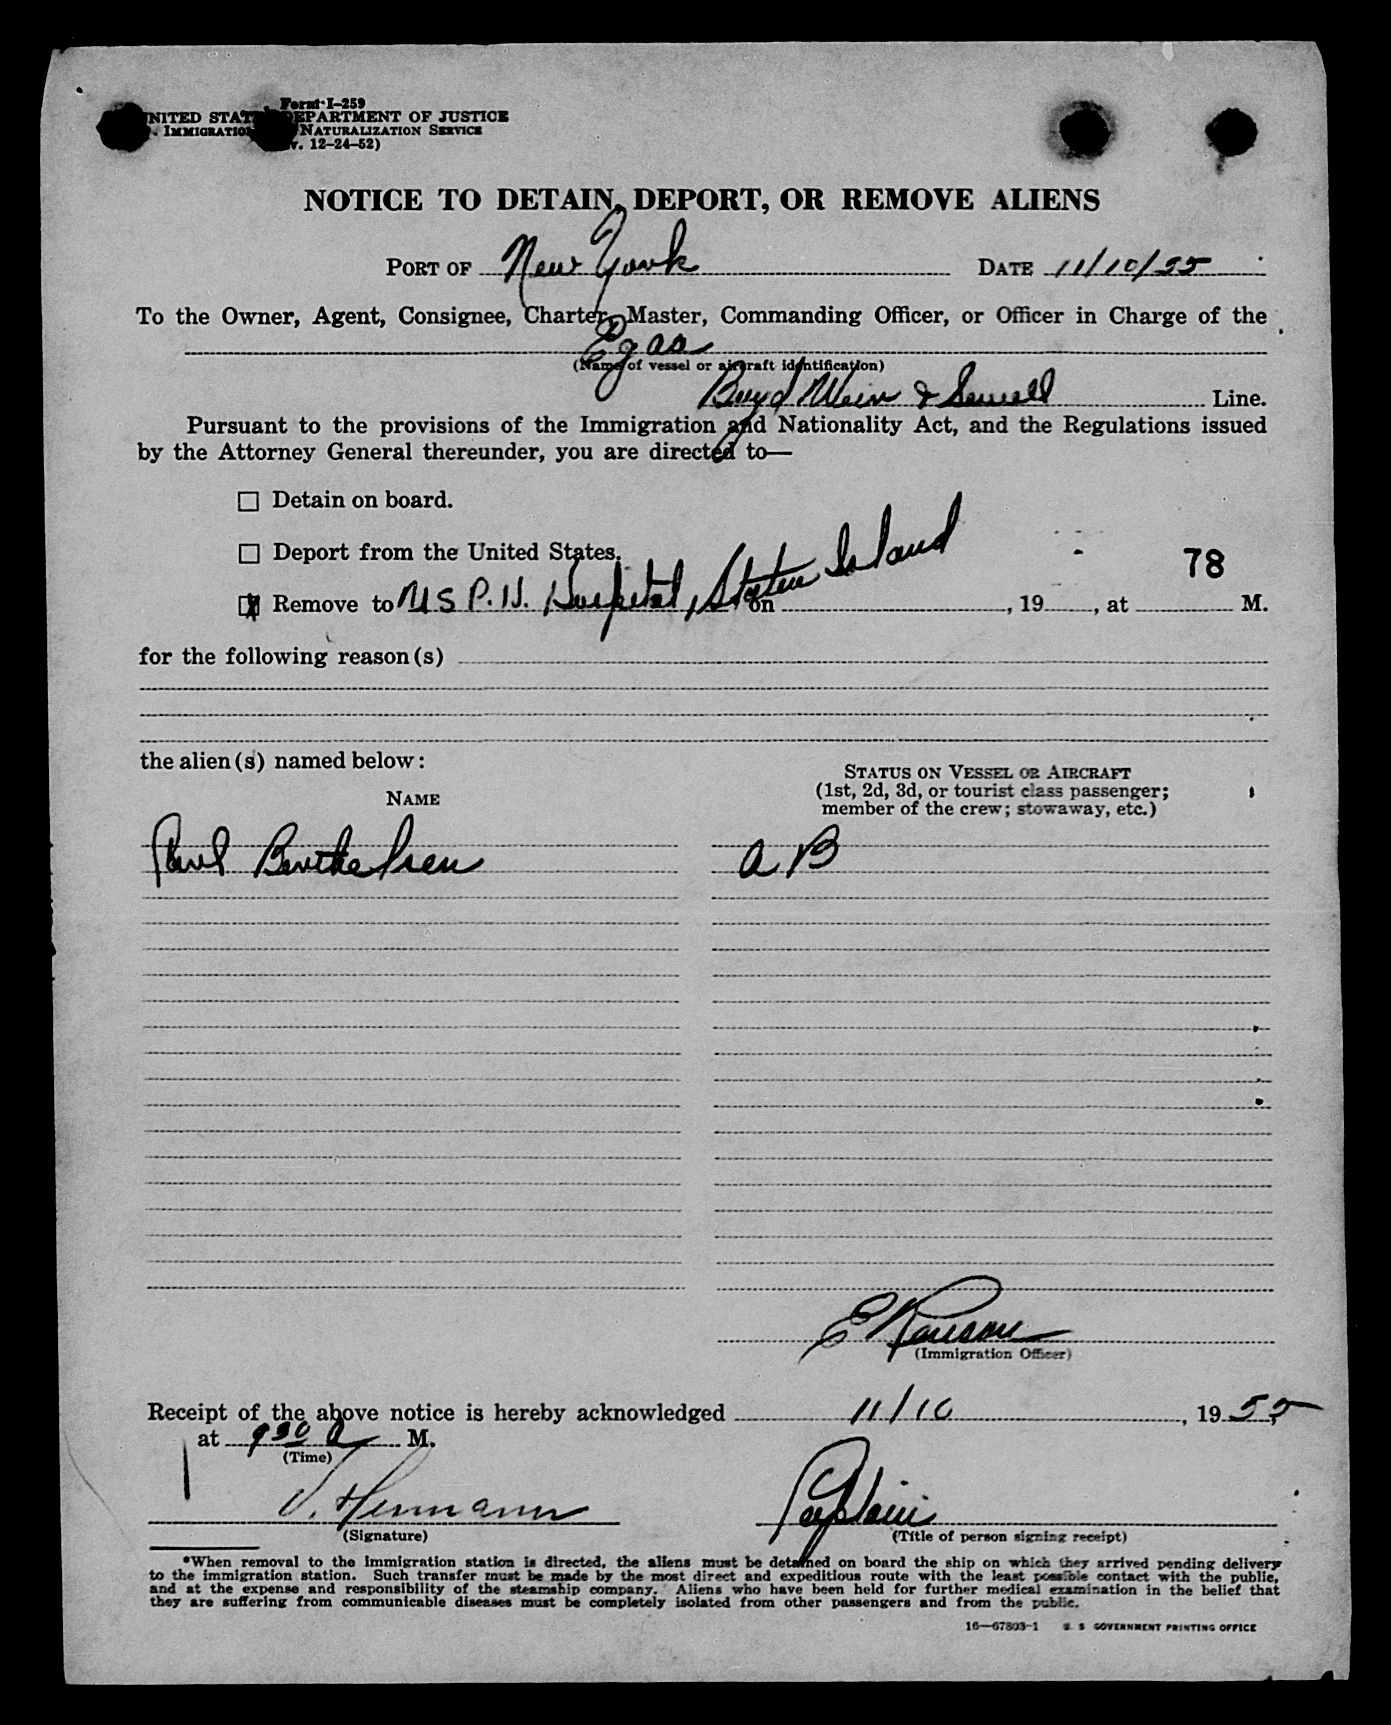 Form I-259
UNITED STATES DEPARTMENT OF JUSTICE
Immigration Naturalization Service
12-24-52)
NOTICE TO DETAIN, DEPORT, OR REMOVE ALIENS
Port of New York Date 11/10/55
To the Owner, Agent, Consignee, Charter, Master, Commanding Officer, or Officer in Charge of the
Egas
(Name of vessel or aircraft identification)
Boyd Weir & Sewell Line.
Pursuant to the provisions of the Immigration and Nationality Act, and the Regulations issued
by the Attorney General thereunder, you are directed to—
Detain on board.
Deport from the United States.
78
Remove to U S P. H. Hospital, Staten Island on , 19 , at M.
for the following reason(s)
the alien(s) named below:
Status on Vessel or Aircraft
(1st, 2d, 3d, or tourist class passenger;
member of the crew; stowaway, etc.)
Name
Poul Berthelsen A B
E
(Immigration Officer)
Receipt of the above notice is hereby acknowledged 11/10, 1955,
at 930 A M.
(Time)
V. Hermann Captain
(Signature) (Title of person signing receipt)
*When removal to the immigration station is directed, the aliens must be detained on board the ship on which they arrived pending delivery
to the immigration station. Such transfer must be made by the most direct and expeditious route with the least possible contact with the public,
and at the expense and responsibility of the steamship company. Aliens who have been held for further medical examination in the belief that
they are suffering from communicable diseases must be completely isolated from other passengers and from the public.
16—67893-1 U. S GOVERNMENT PRINTING OFFICE